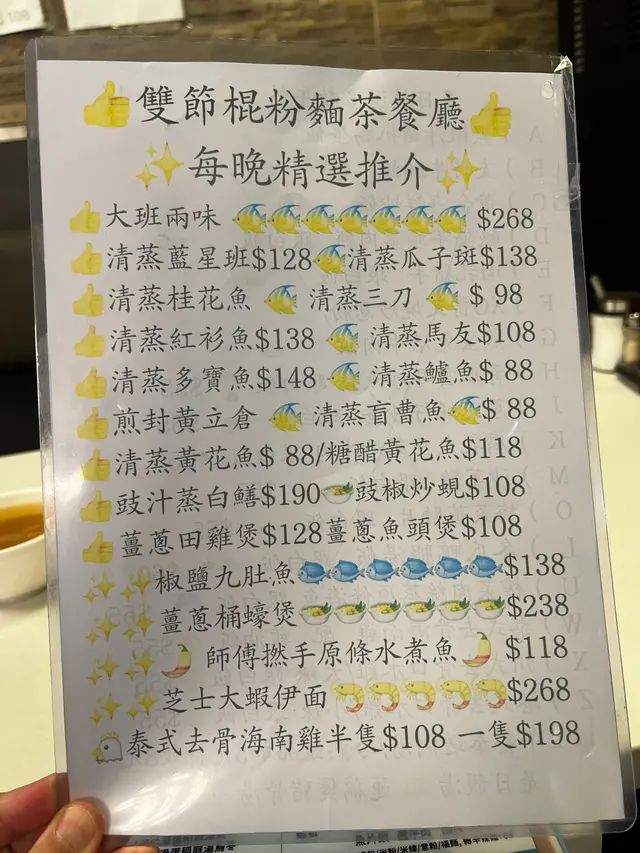 雙節棍粉麵茶餐廳
每晚精選推介
大班兩味 $268
清蒸藍星班$128 清蒸瓜子斑$138
清蒸桂花魚 清蒸三刀 $ 98
清蒸紅衫魚$138 清蒸馬友$108
清蒸多寶魚$148 清蒸鱸魚$ 88
煎封黃立倉 清蒸盲曹魚 $ 88
清蒸黃花魚$ 88/糖醋黃花魚$118
豉汁蒸白鱔$190 豉椒炒蜆$108
薑蔥田雞煲$128薑蔥魚頭煲$108
椒鹽九肚魚 $138
薑蔥桶蠔煲 $238
師傅撚手原條水煮魚 $118
芝士大蝦伊面 $268
泰式去骨海南雞半隻$108 一隻$198